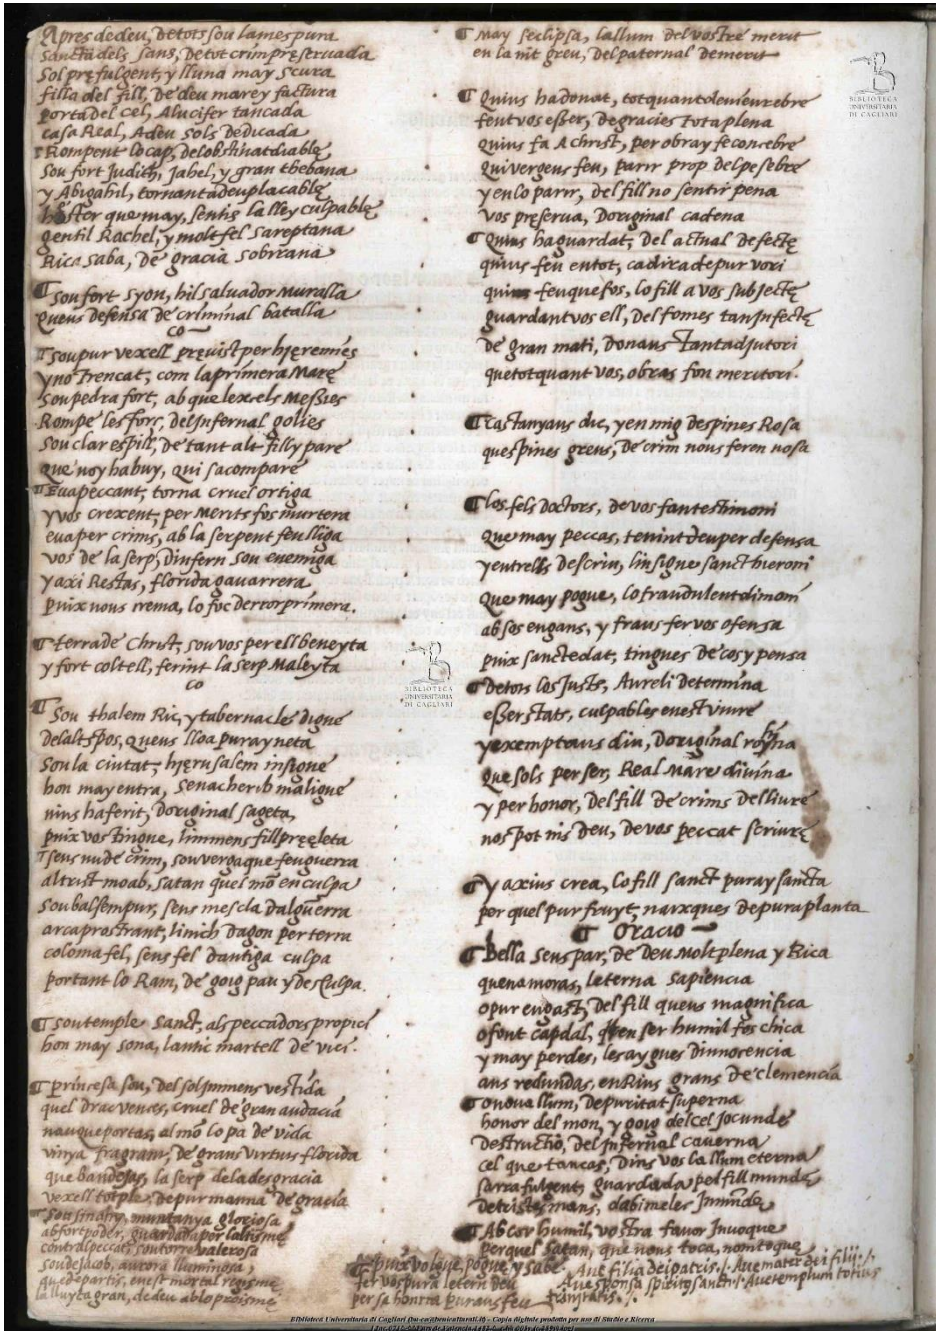 Apres de deu, de tots sou la mes pura
sancta dels sans, de tot crim pręseruada
Sol pręfulgent, y lluna may scura
filla del fill, De deu mare y factura
porta Del cel, A lucifer tancada
casa Real, A deu sols Dedicada
Rompent lo cap, del obstinat diablę
Sou fort Judich, Jahel, y gran thebana
y Abigahil, tornant a deu placablę
hester que may, sentis la lley culpablę
gentil Rachel, y molt fel sareptana
Rica saba, de gracia sobirana
¶ Sou fort syon, hil saluador Muralla
Queus defensa de criminal batalla
co
¶ Sou pur vexell pręuist per hięremies
y no trencat, com la primera Marę
sou pedra fort, ab que lexels Meßies
Rompe les forç, del Infernal golies
Sou clar espill, de tant alt fill y pare
que noy habuy, qui sa comparę
Eua peccant, torna cruel ortiga
y vos crexent, per Merits fos murtera
eua per crims, ab la serpent feu lliga
vos de la serp, dinfern sou enemiga
y axi Restas, florida gauarrera
puix nous crema, lo foc derror primera.
¶ terra de Christ, sou vos per ell beneyta
y fort coltell, ferint la serp Maleyta
co
¶ Sou thalem Ric, y tabernacles digne
del alt spos, queus lloa pura y neta
Sou la ciutat, hięrusalem insigne
hon may entra, senacherib maligne
nius ha ferit, doriginal sageta,
puix vos tingue, limmens fill pręęleta
sens nu de crim, sou verga que feu guerra
al trist moab, satan quel mō en culpa
Sou balsem pur, sens mescla dalguerra
arca prostrant, linich dagon per terra
coloma fel, sens fel dantiga culpa
portant lo Ram, de goig pau y desculpa.
¶ Sou temple sanct, als peccadors propici
hon may sona, lantic martell de vici.
¶ princesa sou, del sol immens vestida
quel drac vences, cruel de gran audacia
nau que portas, al mō lo pa de vida
vinya fragrant, de grans virtuts florida
que bandejas, la serp de la desgracia
vexell tot ple, de pur manna de gracia
Sou sinahy, muntanya gloriosa
ab fort poder, guardada per laltismę
contra l peccat, sou torre valerosa
sou de Jacob, aurora lluminosa,
que departis, enest mortal
la lluyta gran, de deu ab lo proismę
¶ May seclipsa, la llum del vostre merit
en la nit greu, Del paternal demerit
¶ Quius ha donat, tot quant den
fent vos eßer, de gracies tota plena
Quius fa A christ, per obra y fe concebre
Qui vergens feu, parir prop del pesebre
y en lo parir, del fill no sentir pena
vos pręserua, Doriginal cadena
Quius ha guardat, del actual defectę
quius feu en tot, cadira de pur vori
quius feu que fos, lo fill a vos subjectę
guardant vos ell, del fomes tan Infectę
de gran mati, donaus tant adjutori
que tot quant vos, obras fon meritori.
¶ Castanyans diu, y en mig despines Rosa
que spines greus, de crim nous feren nosa
¶ los fels doctors, de vos fan testimoni
Que may peccas, tenint deu per defensa
y entrells descriu, linsigne sanct hieroni
Que may pogue, lo fraudulent dimoni
ab sos engans, y fraus fer vos ofensa
puix sanctedat, tingues de cos y pensa
De tots los Justs, Aureli determina
eßer stats, culpables enest viure
y exemptaus diu, doriginal
Que sols per ser, Real Mare diuina
y per honor, del fill de crims desliure
nos pot nis deu, de vos peccat scriurę
¶ y axius crea, lo fill sanct pura y sancta
per quel pur fruyt, naxques de pura planta
¶ Oracio
¶ Bella sens par, de Deu Molt plena y Rica
quenamoras, leterna sapiencia
o pur engast, del fill queus magnifica
o font capdal, quen ser humil fos chica
y may perdes, les aygues dinnocencia
ans redundas, en Rius grans de clemencia
o noua llum, de puritat superna
honor del mon, y goig del cel Jocundę
Destructio, del Infernal cauerna
cel que tancas, Dins vos la llum eterna
sarra fulgent, guardada pel fill mundę
de trists mans, dabimelec Inmundę
¶ Ab cor humil, vostra fauor Inuoque
per quel satan, que nous toca, nom toque
puix volgue, pogue, y sabe
fer vos pura letern deu
per sa honrra pura us feu
Aue filia dei patris ./. Aue mater dei filii ./.
Aue sponsa spiritu sancti ./. Aue templum totius
trinitatis ./.
BIBLIOTECA
UNIVERSITARIA
DI CAGLIARI
BIBLIOTECA
UNIVERSITARIA
DI CAGLIARI
Biblioteca Universitaria di Cagliari (bu-ca@beniculturali.it) - Copia digitale prodotta per uso di Studio e Ricerca